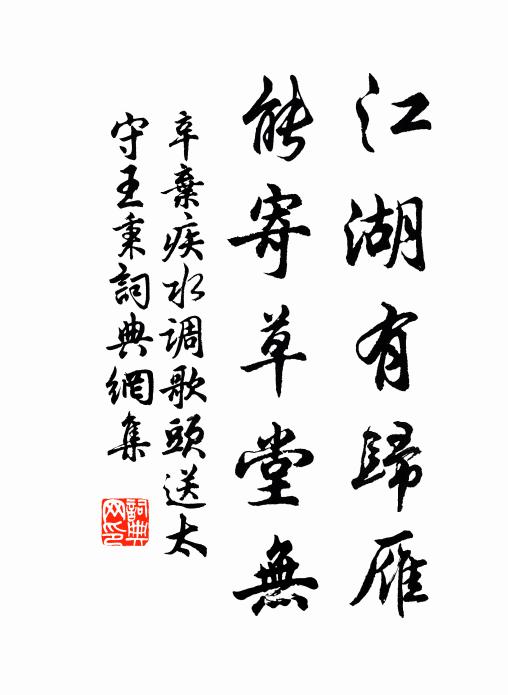 江湖有歸雁
能寄草堂無
辛棄疾水调歌頭送太
守王秉詞典網集
詞典
网印